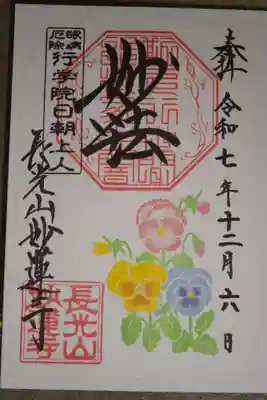 奉拝 令和七年十二月六日
妙法
眼病
厄除
行学院日朝上人
長光山妙蓮寺
長光山
妙蓮寺